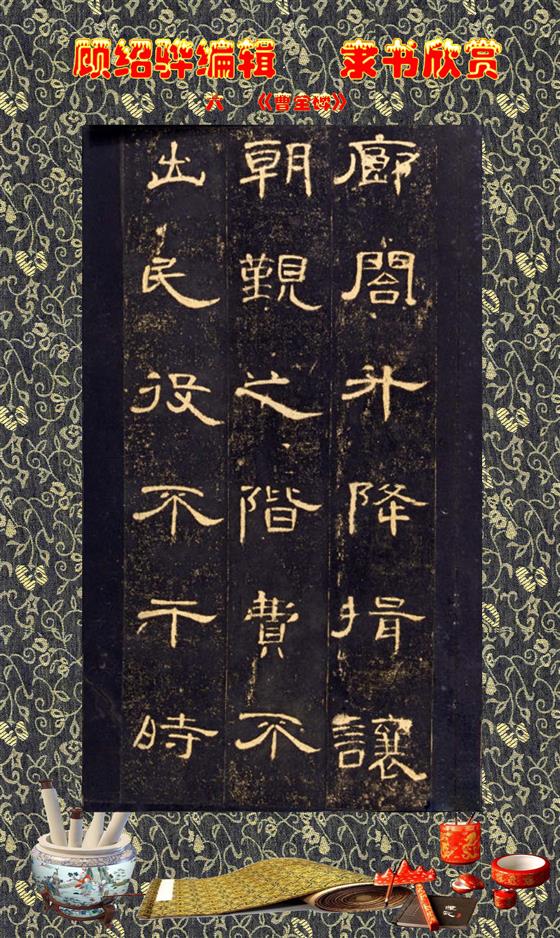 顾绍骅编辑 隶书欣赏
六 《曹全碑》
廊閣升降揖讓
朝覲之階費不
出民役不干時